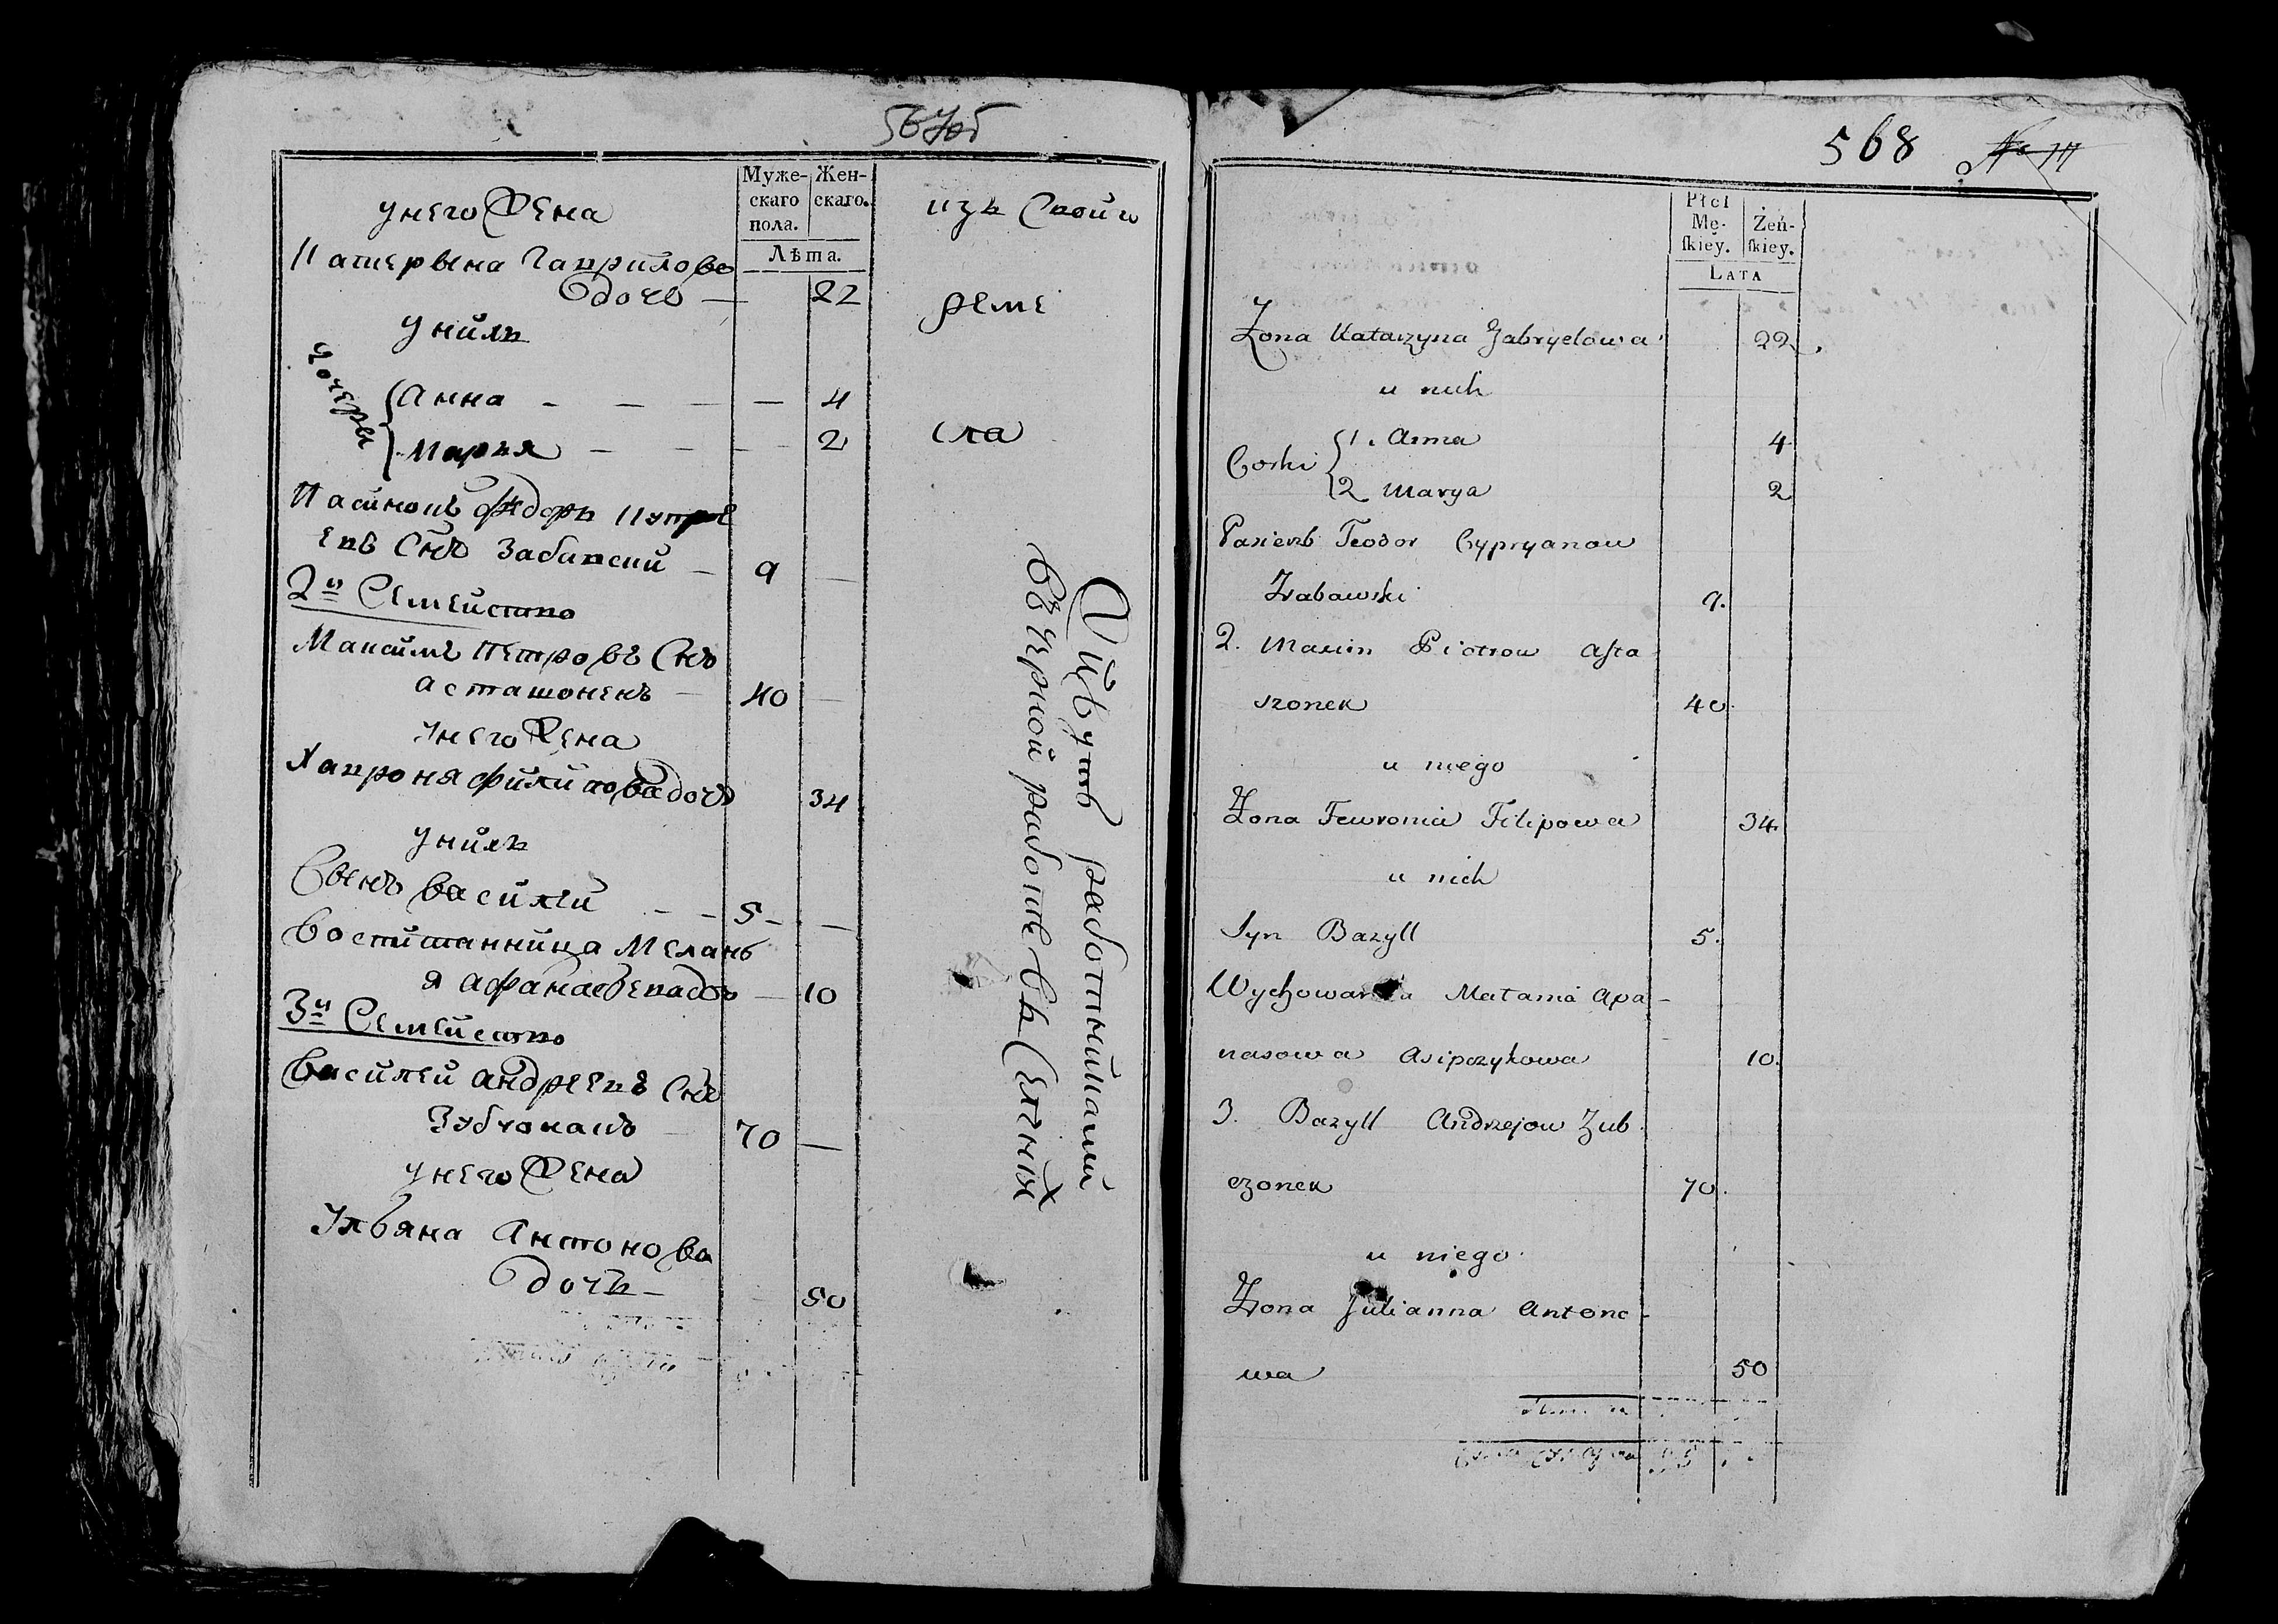 567об
Муже-
скаго
пола.
Жен-
скаго.
Лѣта.
у него жена
Катерына Гаврилова
дочь — 22
у нихъ
дочеры
Анна — — — — 4
Марья — — — 2
Пасинокъ Федоръ Купре
евъ Снъ Забавский — 9 —
2е Семейство
Максимъ Петровъ Снъ
асташонекъ — 40 —
у него жена
Хавроня Филипова дочь 34
у нихъ
Сынъ Василий — — 5 — —
Воспитанница Мелань
я афанасьева дочь — 10
3е Семейство
Василий андреевъ Снъ
Зубчонакъ — 70 —
у него жена
Ульяна Антонова
дочь — 50
изъ Своиго
реме
сла
Живутъ работниками
въ черной работе въ
568
№ III
Płci
Mę-
ſkiey.
Żeń-
ſkiey.
Lata
Zona Katarzyna Gabryelowa 22.
u nich
Corki
1. Anna 4.
2 Marya 2
Pasierb Teodor Cypryanow
Zabawski 9.
2. Maxim Piotrow Asta
szonek 40.
u niego
Zona Fewronia Filipowa 34.
u nich
Syn Bazyll 5.
Melania Apa-
nasowa Asipczykowa 10.
3. Bazyll Andrzejow Zub
czonek 70.
u niego
Zona Julianna Antono-
wa 50